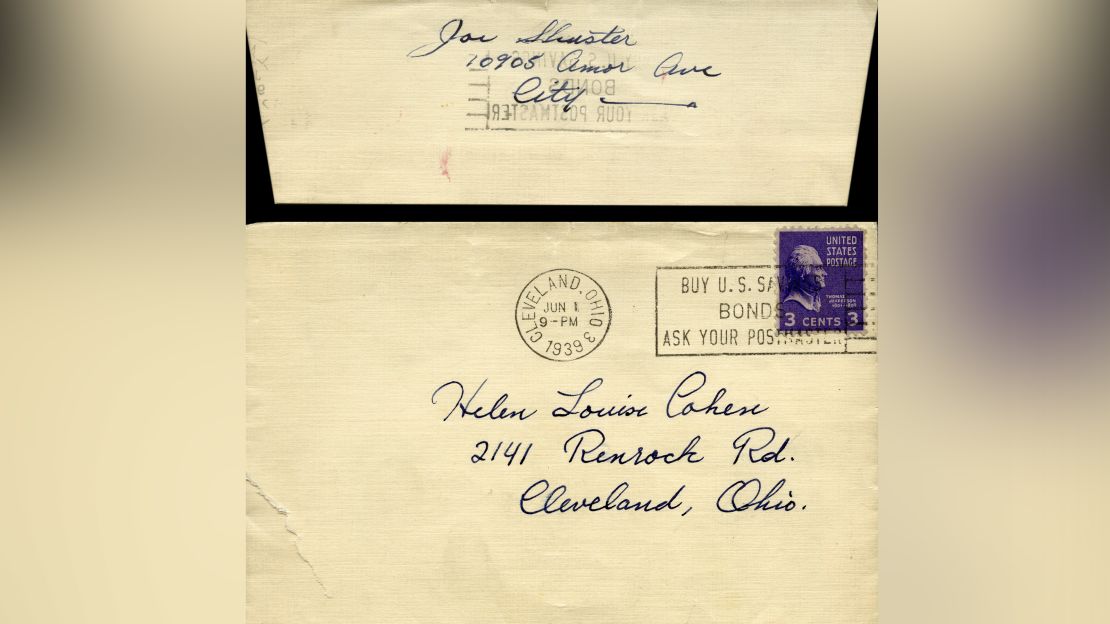 Joe Shuster
10905 Amor Ave
City
U.S. SAVINGS
BONDS
ASK YOUR POSTMASTER
UNITED
STATES
POSTAGE
THOMAS
JEFFERSON
3 CENTS 3
CLEVELAND, OHIO 3
JUN 1
9-PM
1939
BUY U.S. SAV
BONDS
ASK YOUR POSTMASTER
Helen Louise Cohen
2141 Renrock Rd.
Cleveland, Ohio.